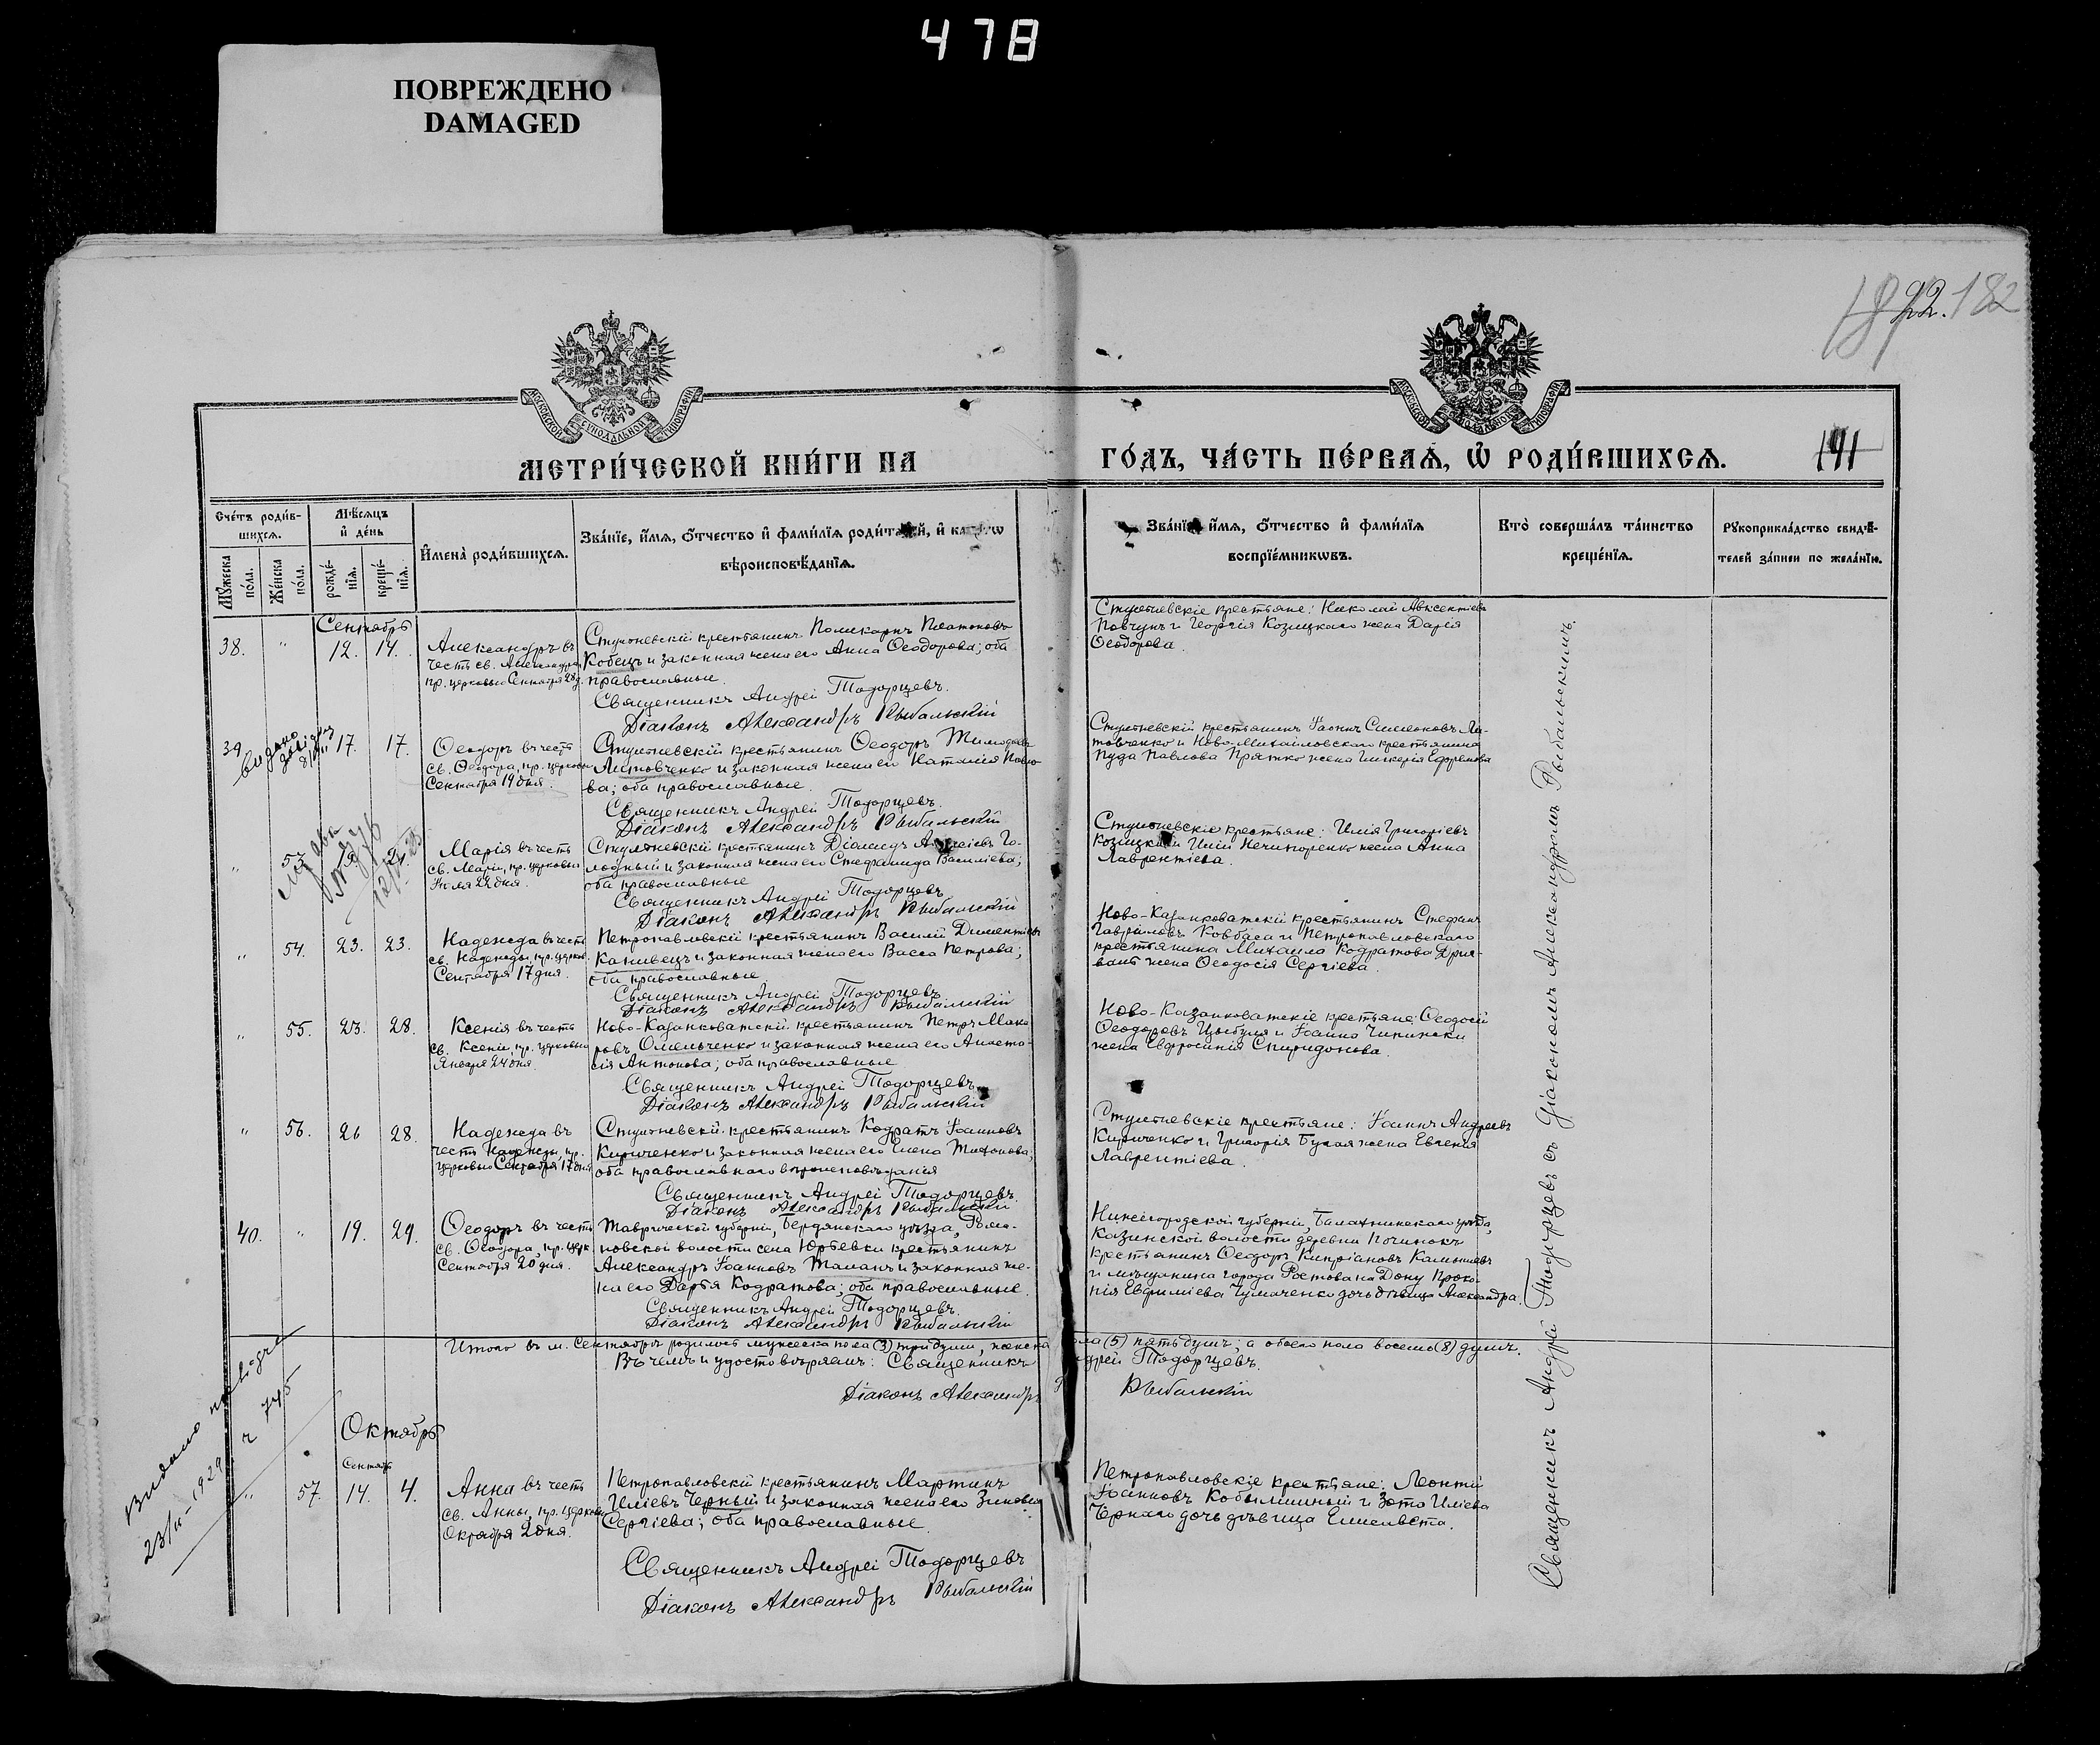 478
ПОВРЕЖДЕНО
DAMAGED
22. 182
МОСКОВСКОЙ СѴНОДАЛЬНОЙ ТИПОГРАФІИ
МОСКОВСКОЙ СѴНОДАЛЬНОЙ ТИПОГРАФІИ
МЕТРИ́ЧЕСКОЙ КНИ́ГИ НА
ГО́ДЪ, ЧА́СТЬ ПЕ́РВАѦ, Ѡ РОДИ́ВШИХСѦ.
141
Сче́тъ роди́в-
шихсѧ.
Мѣ́сѧцъ
и҆ де́нь
Мꙋ́жеска
по́ла.
Же́нска
по́ла.
рожде́-
нїѧ.
креще́-
нїѧ.
И҆мена̀ роди́вшихсѧ.
Зва́нїе, и҆́мѧ, ѻ҆́тчество и҆ фами́лїѧ
вѣ̀роисповѣ́данїѧ.
Зва́нїе и҆́мѧ, ѻ҆́тчество и҆ фами́лїѧ
воспрїе́мникѡвъ.
Кто̀ соверша́лъ та́инство
креще́нїѧ.
Рꙋкоприкла́дство свидѣ́-
телей за́писи по жела́нїю.
Сентябрь
38. " 12. 14.
Александръ въ
честь св. Александра
пр. церковью Сентября 28 д.
крестьянинъ Поликарпъ Платоновъ
Кобецъ и законная жена его Анна Ѳеодорова; оба
православные.
Священникъ Андрей Тодорцевъ.
Діаконъ Александръ Рыбальскій
крестьяне: Николай Авксентіевъ
Повчунъ и Георгія Козицкаго жена Дарія
Ѳеодорова.
39. " 17. 17.
Ѳеодоръ въ честь
св. Ѳеодора, пр. церковью
Сентября 19 дня.
крестьянинъ Ѳеодоръ
Литовченко и законная жена его Наталія Павло-
ва; оба православные.
Священникъ Андрей Тодорцевъ.
Діаконъ Александръ Рыбальскій
крестьянинъ Іоаннъ Симеоновъ Ли-
товченко и Ново-Михайловскаго крестьянина
Павлова жена Гликерія Ефремова
" 53.
Марія въ честь
св. Маріи, пр. церковью
Іюля 22 дня.
крестьянинъ Діомидъ Го-
лодный и законная жена его Стефанида Василіева;
оба православные
Священникъ Андрей Тодорцевъ
Діаконъ Александръ Рыбальскій
крестьяне: Илія Григоріевъ
Козицкій и Иліи Нечипоренко жена Анна
Лаврентіева.
" 54. 23. 23.
Надежда въ честь
св. Надежды, пр. церков.
Сентября 17 дня.
Петропавловскій крестьянинъ Василій Дементіевъ
Канивецъ и законная жена его Васса Петрова;
оба православные
Священникъ Андрей Тодорцевъ
Діаконъ Александръ Рыбальскій
Ново-Казанковатскій крестьянинъ Стефанъ
Гавріиловъ Ковбаса и Петропавловскаго
крестьянина Михаила Кодратова
жена Ѳеодосія Сергіева.
" 55. 23. 28.
Ксенія въ честь
св. Ксеніи, пр. церковью
Января 24 дня.
Ново-Казанковатскій крестьянинъ Петръ Мака-
ровъ Омельченко и законная жена его Анаста-
сія Антонова; оба православные
Священникъ Андрей Тодорцевъ
Діаконъ Александръ Рыбальскій
Ново-Казанковатскіе крестьяне: Ѳеодосій
Ѳеодоровъ Цыбуля и Іоанна
жена Евфросинія Спиридонова.
" 56. 26 28.
Надежда въ
честь Надежды, пр.
церковью Сентября 17 дня
крестьянинъ Кодратъ Іоанновъ
Кириченко и законная жена его Елена
оба православнаго вѣроисповѣданія
Священникъ Андрей Тодорцевъ.
Діаконъ Александръ Рыбальскій
крестьяне: Іоаннъ Андреевъ
Кириченко и Григорія жена Евгенія
Лаврентіева.
40. " 19. 29.
Ѳеодоръ въ честь
св. Ѳеодора, пр. церк.
Сентября 20 дня.
Таврической губерніи, Бердянскаго уѣзда, Рома-
новской волости села Юрьевки крестьянинъ
Александръ Іоанновъ и законная же-
на его Дарья Кодратова; оба православные.
Священникъ Андрей Тодорцевъ.
Діаконъ Александръ Рыбальскій
Нижегородской губерніи, Балахнинскаго уѣзда,
Козинской волости деревни Починокъ
крестьянинъ Ѳеодоръ Кипріановъ
и мѣщанина города Ростова на Дону Проко-
пія Евфиміева Чумаченко дочь дѣвица Александра.
Итого въ м. Сентябрѣ родилось мужеска пола (3) три души, женска пола (5) пять душъ; а обоего пола восемь (8) душъ.
Въ чемъ и удостовѣряемъ: Священникъ Андрей Тодорцевъ.
Діаконъ Александръ Рыбальскій
Октябрь
Сентябрь
" 57. 14. 4.
Анна въ честь
св. Анны, пр. церковью
Октября 2 дня.
Петропавловскій крестьянинъ Мартинъ
Иліевъ Черный и законная жена его Зиновія
Сергіева; оба православные.
Священникъ Андрей Тодорцевъ
Діаконъ Александръ Рыбальскій
Петропавловскіе крестьяне: Леонтій
Іоанновъ и Зота Иліева
Чернаго дочь дѣвица Елисавета.
Священникъ Андрей Тодорцевъ съ Діакономъ Александромъ Рыбальскимъ.
Видано
745